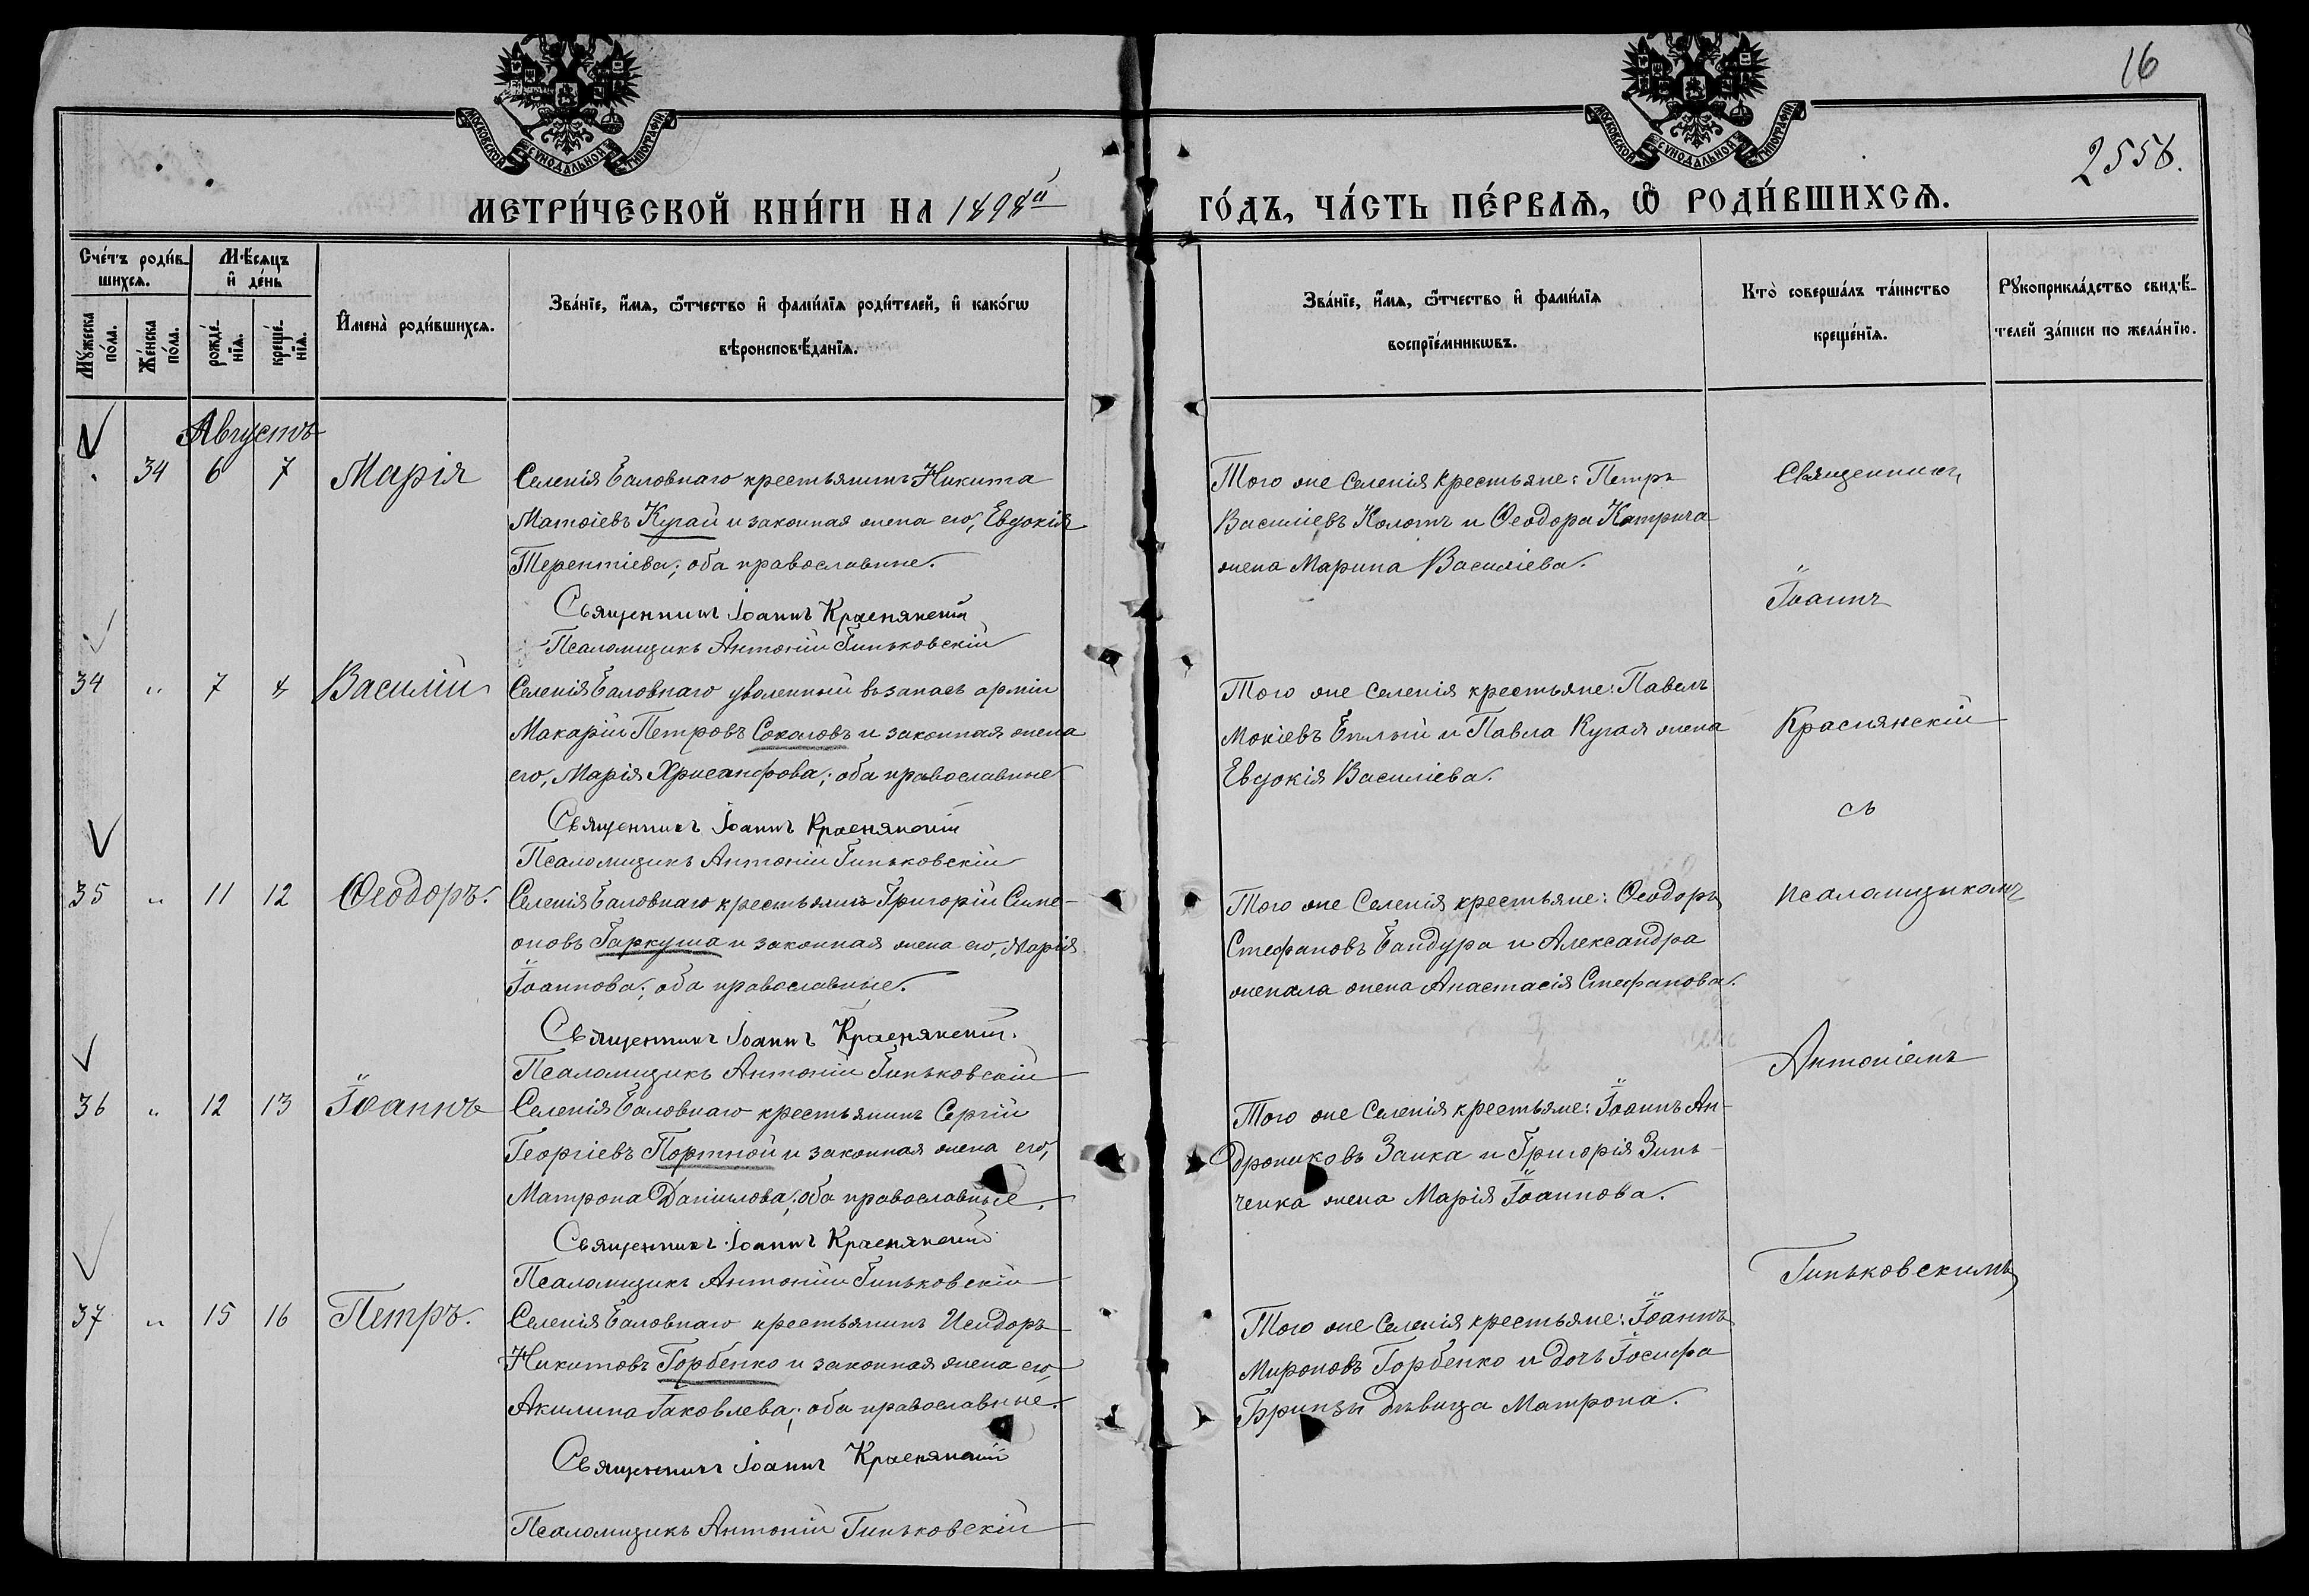 16
2558.
МОСКОВСКОЙ СУНОДАЛЬНОЙ ТИПОГРАФІИ
МОСКОВСКОЙ СУНОДАЛЬНОЙ ТИПОГРАФІИ
МЕТРИ́ЧЕСКОЙ КНИ́ГИ НА 1898й
ГО́ДЪ, ЧА́СТЬ ПЕ́РВАѦ, Ѡ҆ РОДИ́ВШИХСѦ.
Сче́тъ роди́в-
шихсѧ.
Мꙋ́жеска по́ла.
Же́нска по́ла.
Мѣ́сѧцъ
и҆ де́нь
рожде́-
нїѧ.
креще́-
нїѧ.
И҆мена̀ роди́вшихсѧ.
Зва́нїе, и҆́мѧ, ѻ҆́тчество и҆ фами́лїѧ роди́телей, и҆ како́гѡ
вѣроисповѣ́данїѧ.
Зва́нїе, и҆́мѧ, ѻ҆́тчество и҆ фами́лїѧ
воспрїе́мникѡвъ.
Кто̀ соверша́лъ та́инство
креще́нїѧ.
Рꙋкоприкла́дство свидѣ́-
телей за́писи по жела́нїю.
Августъ
34 6 7 Марія
Селенія Баловнаго крестьянинъ Никита
Матѳіевъ Кугай и законная жена его, Евдокія
Терентіева; оба православные.
Священникъ Іоаннъ Краснянскій
Псаломщикъ Антоній Гиньковскій
Того же селенія крестьяне: Петръ
Василіевъ Колотъ и Ѳеодора Катрича
жена Марина Василіева.
34 " 7 8 Василій
Селенія Баловнаго уволенный въ запасъ арміи
Макарій Петровъ Соколовъ и законная жена
его, Марія Хрисанфова; оба православные
Священникъ Іоаннъ Краснянскій
Псаломщикъ Антоній Гиньковскій
Того же селенія крестьяне: Павелъ
Мокіевъ Бѣлый и Павла Кугая жена
Евдокія Василіева.
35 " 11 12 Ѳеодоръ.
Селенія Баловнаго крестьянинъ Григорій Симе-
оновъ Гаркуша и законная жена его, Марія
Іоаннова; оба православные.
Священникъ Іоаннъ Краснянскій.
Псаломщикъ Антоній Гиньковскій
Того же Селенія крестьяне: Ѳеодоръ
Стефановъ Бандура и Александра
жена Анастасія Стефанова.
36 " 12 13 Іоаннъ
Селенія Баловнаго крестьянинъ Сергій
Георгіевъ Портной и законная жена его,
Матрона Даніилова; оба православные.
Священникъ Іоаннъ Краснянскій
Псаломщикъ Антоній Гиньковскій
Того же Селенія крестьяне: Іоаннъ Ан-
дрониковъ Заика и Григорія Зинь-
ченка жена Марія Іоаннова.
37 " 15 16 Петръ.
Селенія Баловнаго крестьянинъ Исидоръ
Никитовъ Горбенко и законная жена его,
Акилина Іаковлева; оба православные.
Священникъ Іоаннъ Краснянскій
Псаломщикъ Антоній Гиньковскій
Того же Селенія крестьяне: Іоаннъ
Мироновъ Горбенко и дочь Іосифа
Бринзы дѣвица Матрона.
Священникъ
Іоаннъ
Краснянскій
съ
псаломщикомъ
Антоніемъ
Гиньковскимъ